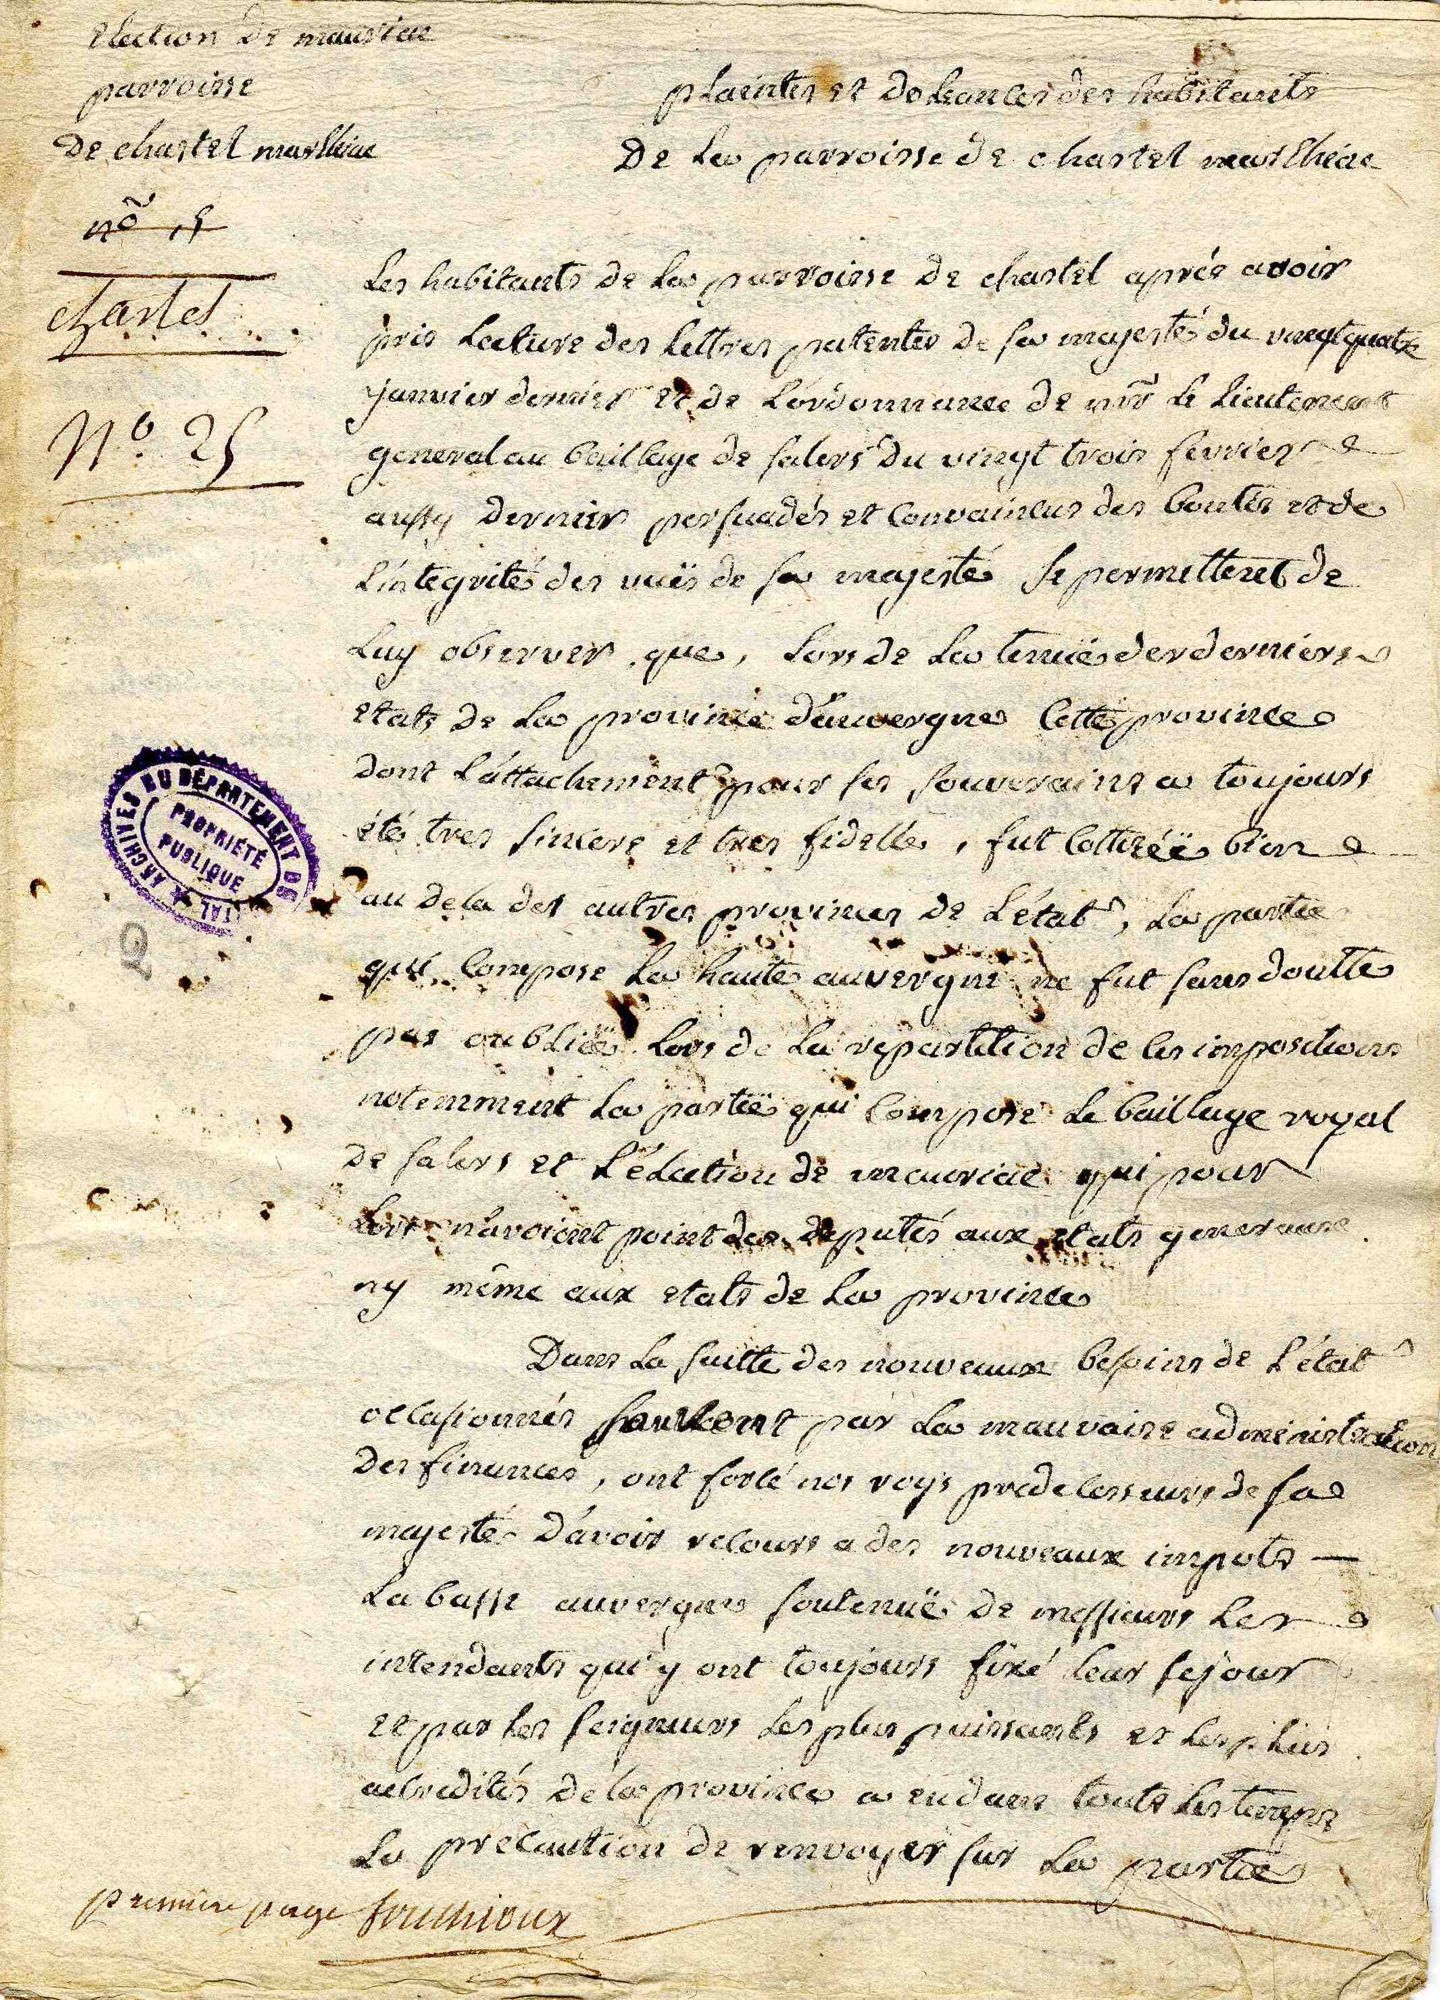 Election de mauriac
parroisse
De chastel marlhiac
n° 15
chastel
N° 25
plaintes et doleances des habitants
De La parroisse de chastel marlhiac
Les habitants de La parroisse de chastel aprés avoir
pris Lecture des Lettres patentes de sa majesté du vingt quatre
janvier dernier et de L'ordonnance de mr Le Lieutenant
general au bailliage de salers du vingt trois fevrier
aussy dernier persuadés et Convaincus des bontés et de
L'integrité des vuës de sa majesté se permettent de
Luy observer que, Lors de La tenuë des derniers
etats de La province d'auvergne Cette province
dont L'attachement pour ses souverains a toujours
été tres sincere et tres fidelle, fut Cottiséë bien
au dela des autres provinces de L'état, La partie
qui Compose La haute auvergne ne fut sans doutte
pas oubliëe Lors de La repartition de Ces impositions
notemment La partië qui Compose Le bailliage royal
de salers et L'élection de mauriac qui pour
Lors n'avoient point des deputés aux etats generaux
ny même aux etats de La province
Dans La suitte des nouveaux besoins de L'état
occasionnés souvent par La mauvaise administration
des finances, ont forcé nos roys predecesseurs de sa
majesté d'avoir recours a des nouveaux impots
La basse auvergne soutenuë de messieurs Les
intendants qui y ont toujours fixé leur sejour
et par Les seigneurs Les plus puissants et Les plus
accredités de la province a eu dans touts Les temps
La precaution de renvoyer sur La partie
premiere page
ARCHIVES DU DÉPARTEMENT DU CANTAL
PROPRIÉTÉ
PUBLIQUE